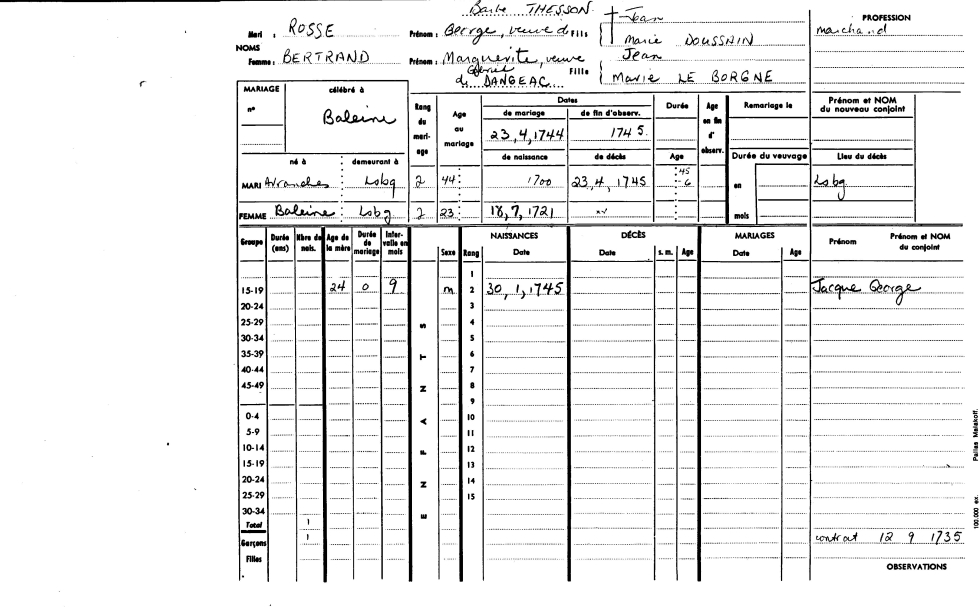 Barbe THESSON
Mari : ROSSE Prénom : George, veuve d Fils Jean
Marie DOUSSAIN
NOMS
Femme : BERTRAND Prénom : Marguerite, veuve Gabriel d. DANGEAC Fille Jean
Marie LE BORGNE
PROFESSION
marchand
MARIAGE
n°
célébré à
Baleine
Rang du mari-age
Age au mariage
Dates
de mariage
23,4,1744
de fin d'observ.
1745
Durée
Age en fin d' observ.
Remariage le
Prénom et NOM du nouveau conjoint
né à demeurant à
de naissance de décès Age
Durée du veuvage
Lieu du décès
MARI Avranches Lsbg 2 44 1700 23,4,1745 45 - 6
en
Lsbg
FEMME Baleine Lsbg 2 23 18,7,1721
mois
Groupe Durée (ans) Nbre de nais. Age de la mère Durée de mariage Inter-valle en mois
ENFANTS
Sexe Rang
NAISSANCES
Date
DÉCÈS
Date s. m. Age
MARIAGES
Date Age
Prénom
Prénom et NOM du conjoint
1
15-19 24 0 9 m 2 30,1,1745 Jacque George
20-24 3
25-29 4
30-34 5
35-39 6
40-44 7
45-49 8
9
0-4 10
5-9 11
10-14 12
15-19 13
20-24 14
25-29 15
30-34
Total 1
Garçons 1
Filles
contrat 12 9 1735
OBSERVATIONS
100.000 ex. Pallas Malakoff.